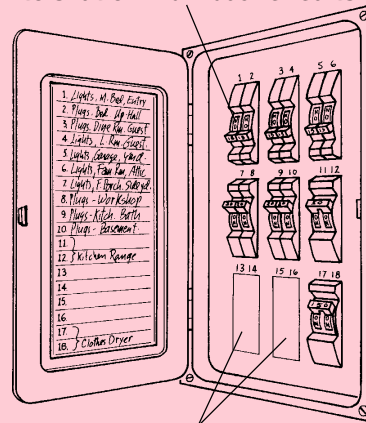 1. Lights, M. Bed, Entry
2. Plugs Bed Up Hall
3. Plugs. Dine Rm. Guest
4. Lights, L. Rm. Guest.
5. Lights, Garage, Yard
6. Lights, Fam Rm, Attic
7. Lights, F. Porch,
8. Plugs - Workshop
9. Plugs-Kitch. Bath
10. Plugs - Basement
11.
12. Kitchen Range
13
14.
15.
16.
17.
18. Clothes Dryer
1 2
3 4
5 6
7 8
9 10
11 12
13 14
15 16
17 18